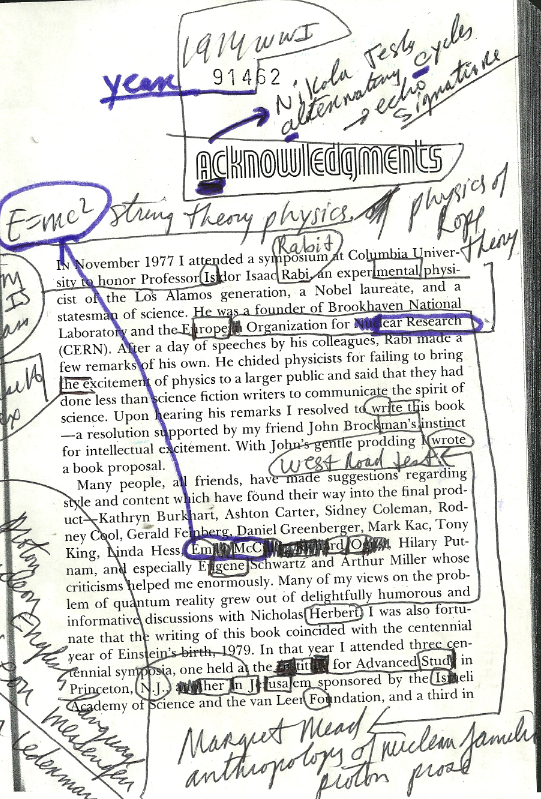 1914 WWI
year 91462
Nikola Tesla
alternating cycles
→ echo signature
Acknowledgments
E=mc² String theory physics. physics of
Rope
theory
Rabit
IN November 1977 I attended a symposium at Columbia Univer-
sity to honor Professor Isidor Isaac Rabi, an experimental physi-
cist of the Los Alamos generation, a Nobel laureate, and a
statesman of science. He was a founder of Brookhaven National
Laboratory and the Europe Organization for Nuclear Research
(CERN). After a day of speeches by his colleagues, Rabi made a
few remarks of his own. He chided physicists for failing to bring
the excitement of physics to a larger public and said that they had
done less than science fiction writers to communicate the spirit of
science. Upon hearing his remarks I resolved to write this book
—a resolution supported by my friend John Brockman's instinct
for intellectual excitement. With John's gentle prodding I wrote
a book proposal.
West Road test
Many people, all friends, have made suggestions regarding
style and content which have found their way into the final prod-
uct—Kathryn Burkhart, Ashton Carter, Sidney Coleman, Rod-
ney Cool, Gerald Feinberg, Daniel Greenberger, Mark Kac, Tony
King, Linda Hess, Em McC Hilary Put-
nam, and especially Eugene Schwartz and Arthur Miller whose
criticisms helped me enormously. Many of my views on the prob-
lem of quantum reality grew out of delightfully humorous and
informative discussions with Nicholas Herbert. I was also fortu-
nate that the writing of this book coincided with the centennial
year of Einstein's birth, 1979. In that year I attended three cen-
tennial symposia, one held at the for Advanced Stud in
Princeton, N.J., another in Jerusalem sponsored by the Israeli
Academy of Science and the van Leer Foundation, and a third in
Margret Mead
anthropology of nuclear famili
proton prose
English language
messenger
Lederman